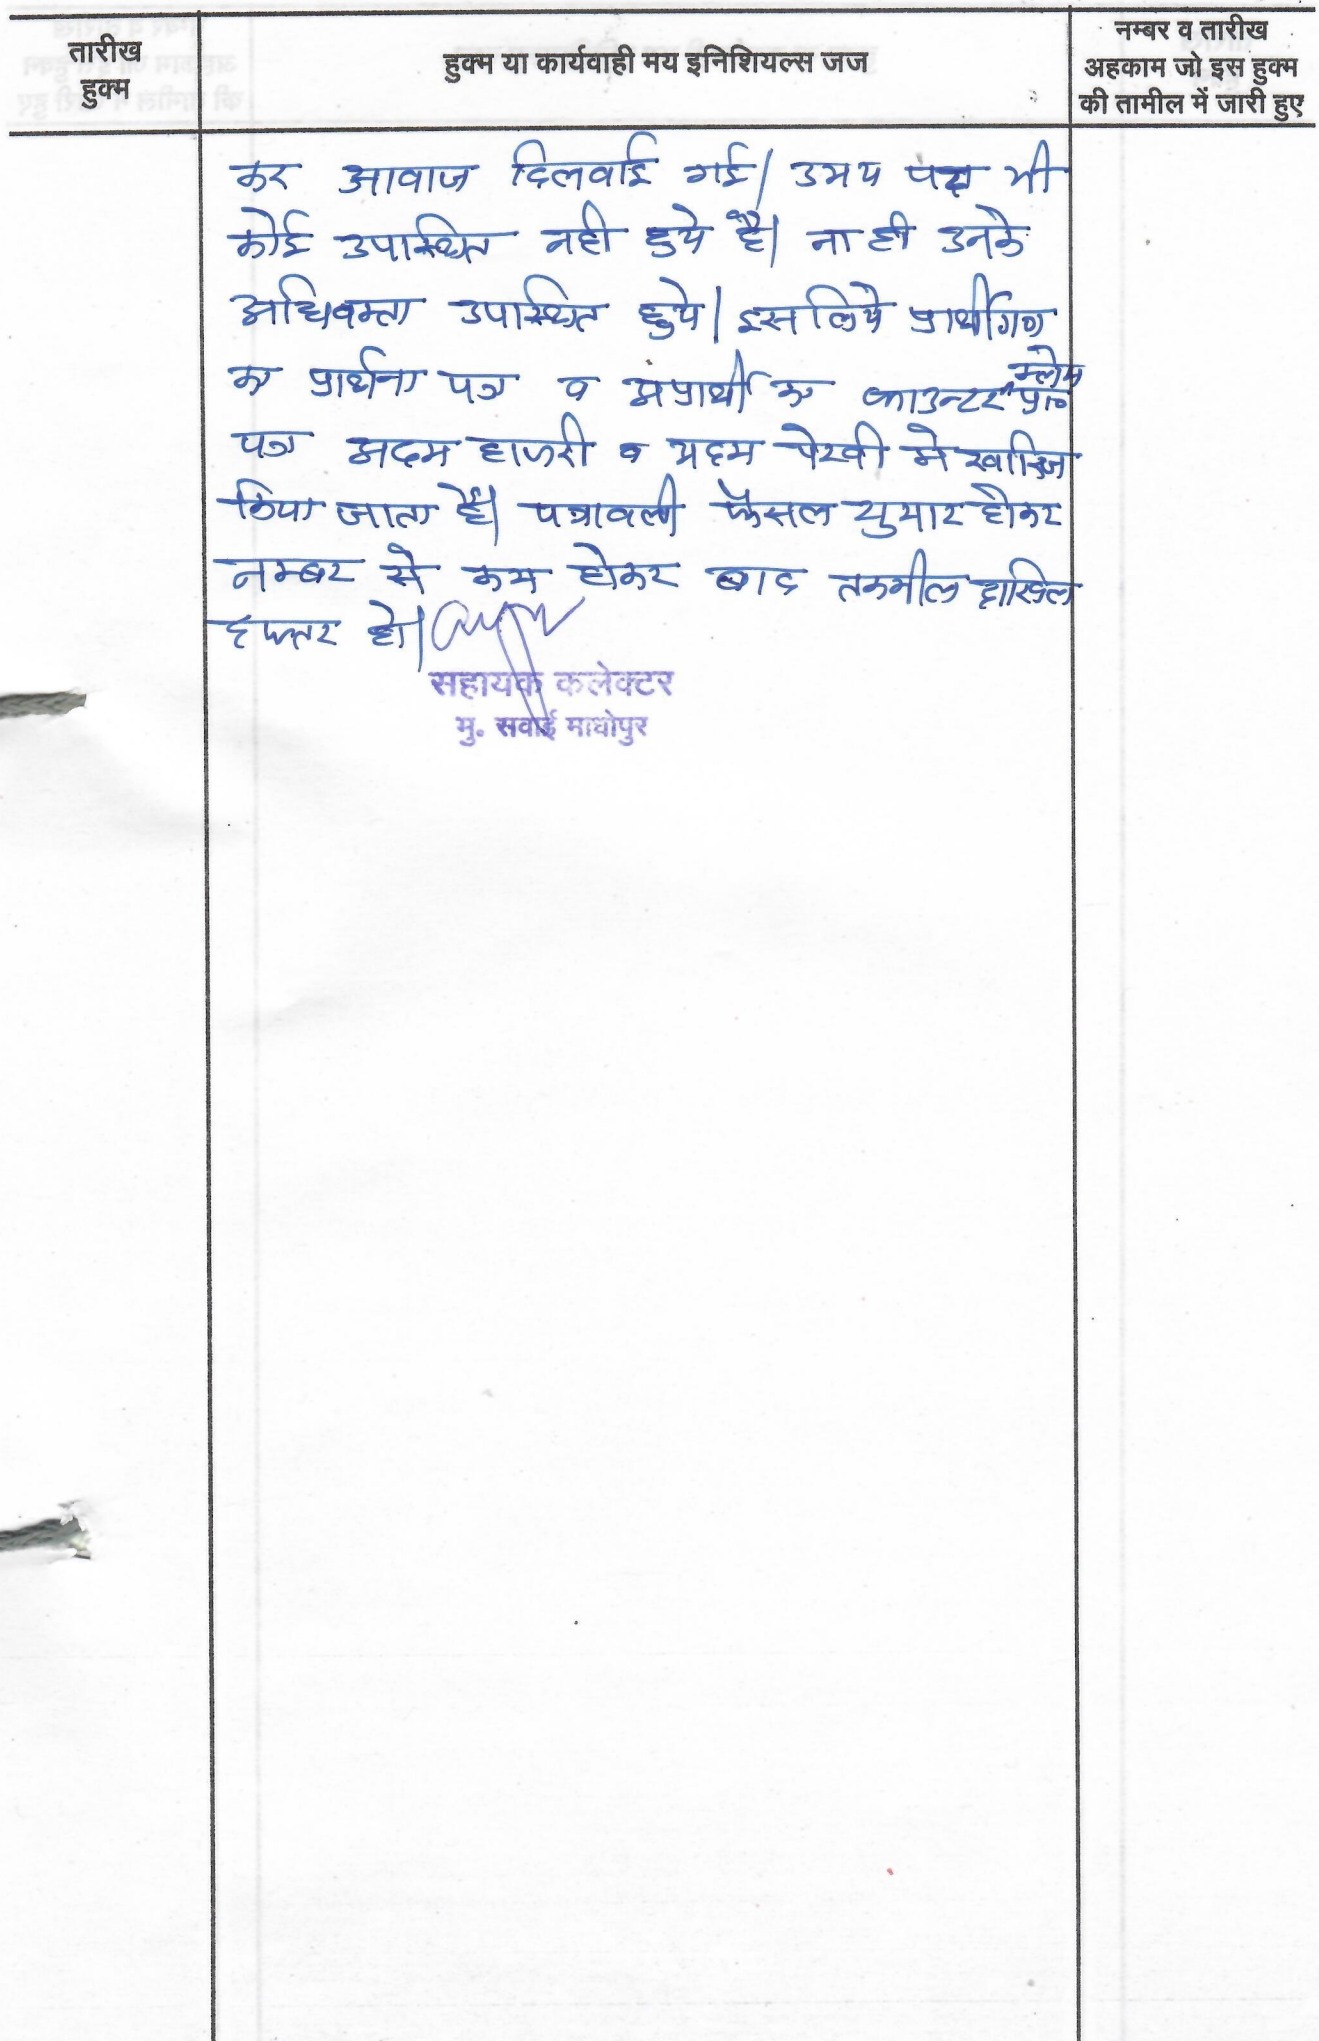 तारीख
हुक्म
हुक्म या कार्यवाही मय इनिशियल्स जज
नम्बर व तारीख
अहकाम जो इस हुक्म
की तामील में जारी हुए
कर आवाज दिलवाई गई। उभय पक्ष भी
कोई उपस्थित नही हुये है। ना ही उनके
अधिवक्ता उपस्थित हुये। इसलिये प्रार्थीगण
का प्रार्थना पत्र व अप्रार्थी का काउन्टर क्लेम प्रा०
पत्र अदम हाजरी व अदम पेरवी मे खारिज
किया जाता है। पत्रावली फैसल सुमार होकर
नम्बर से कम होकर बाद तकमील दाखिल
दफ्तर हो।
सहायक कलेक्टर
मु. सवाई माधोपुर